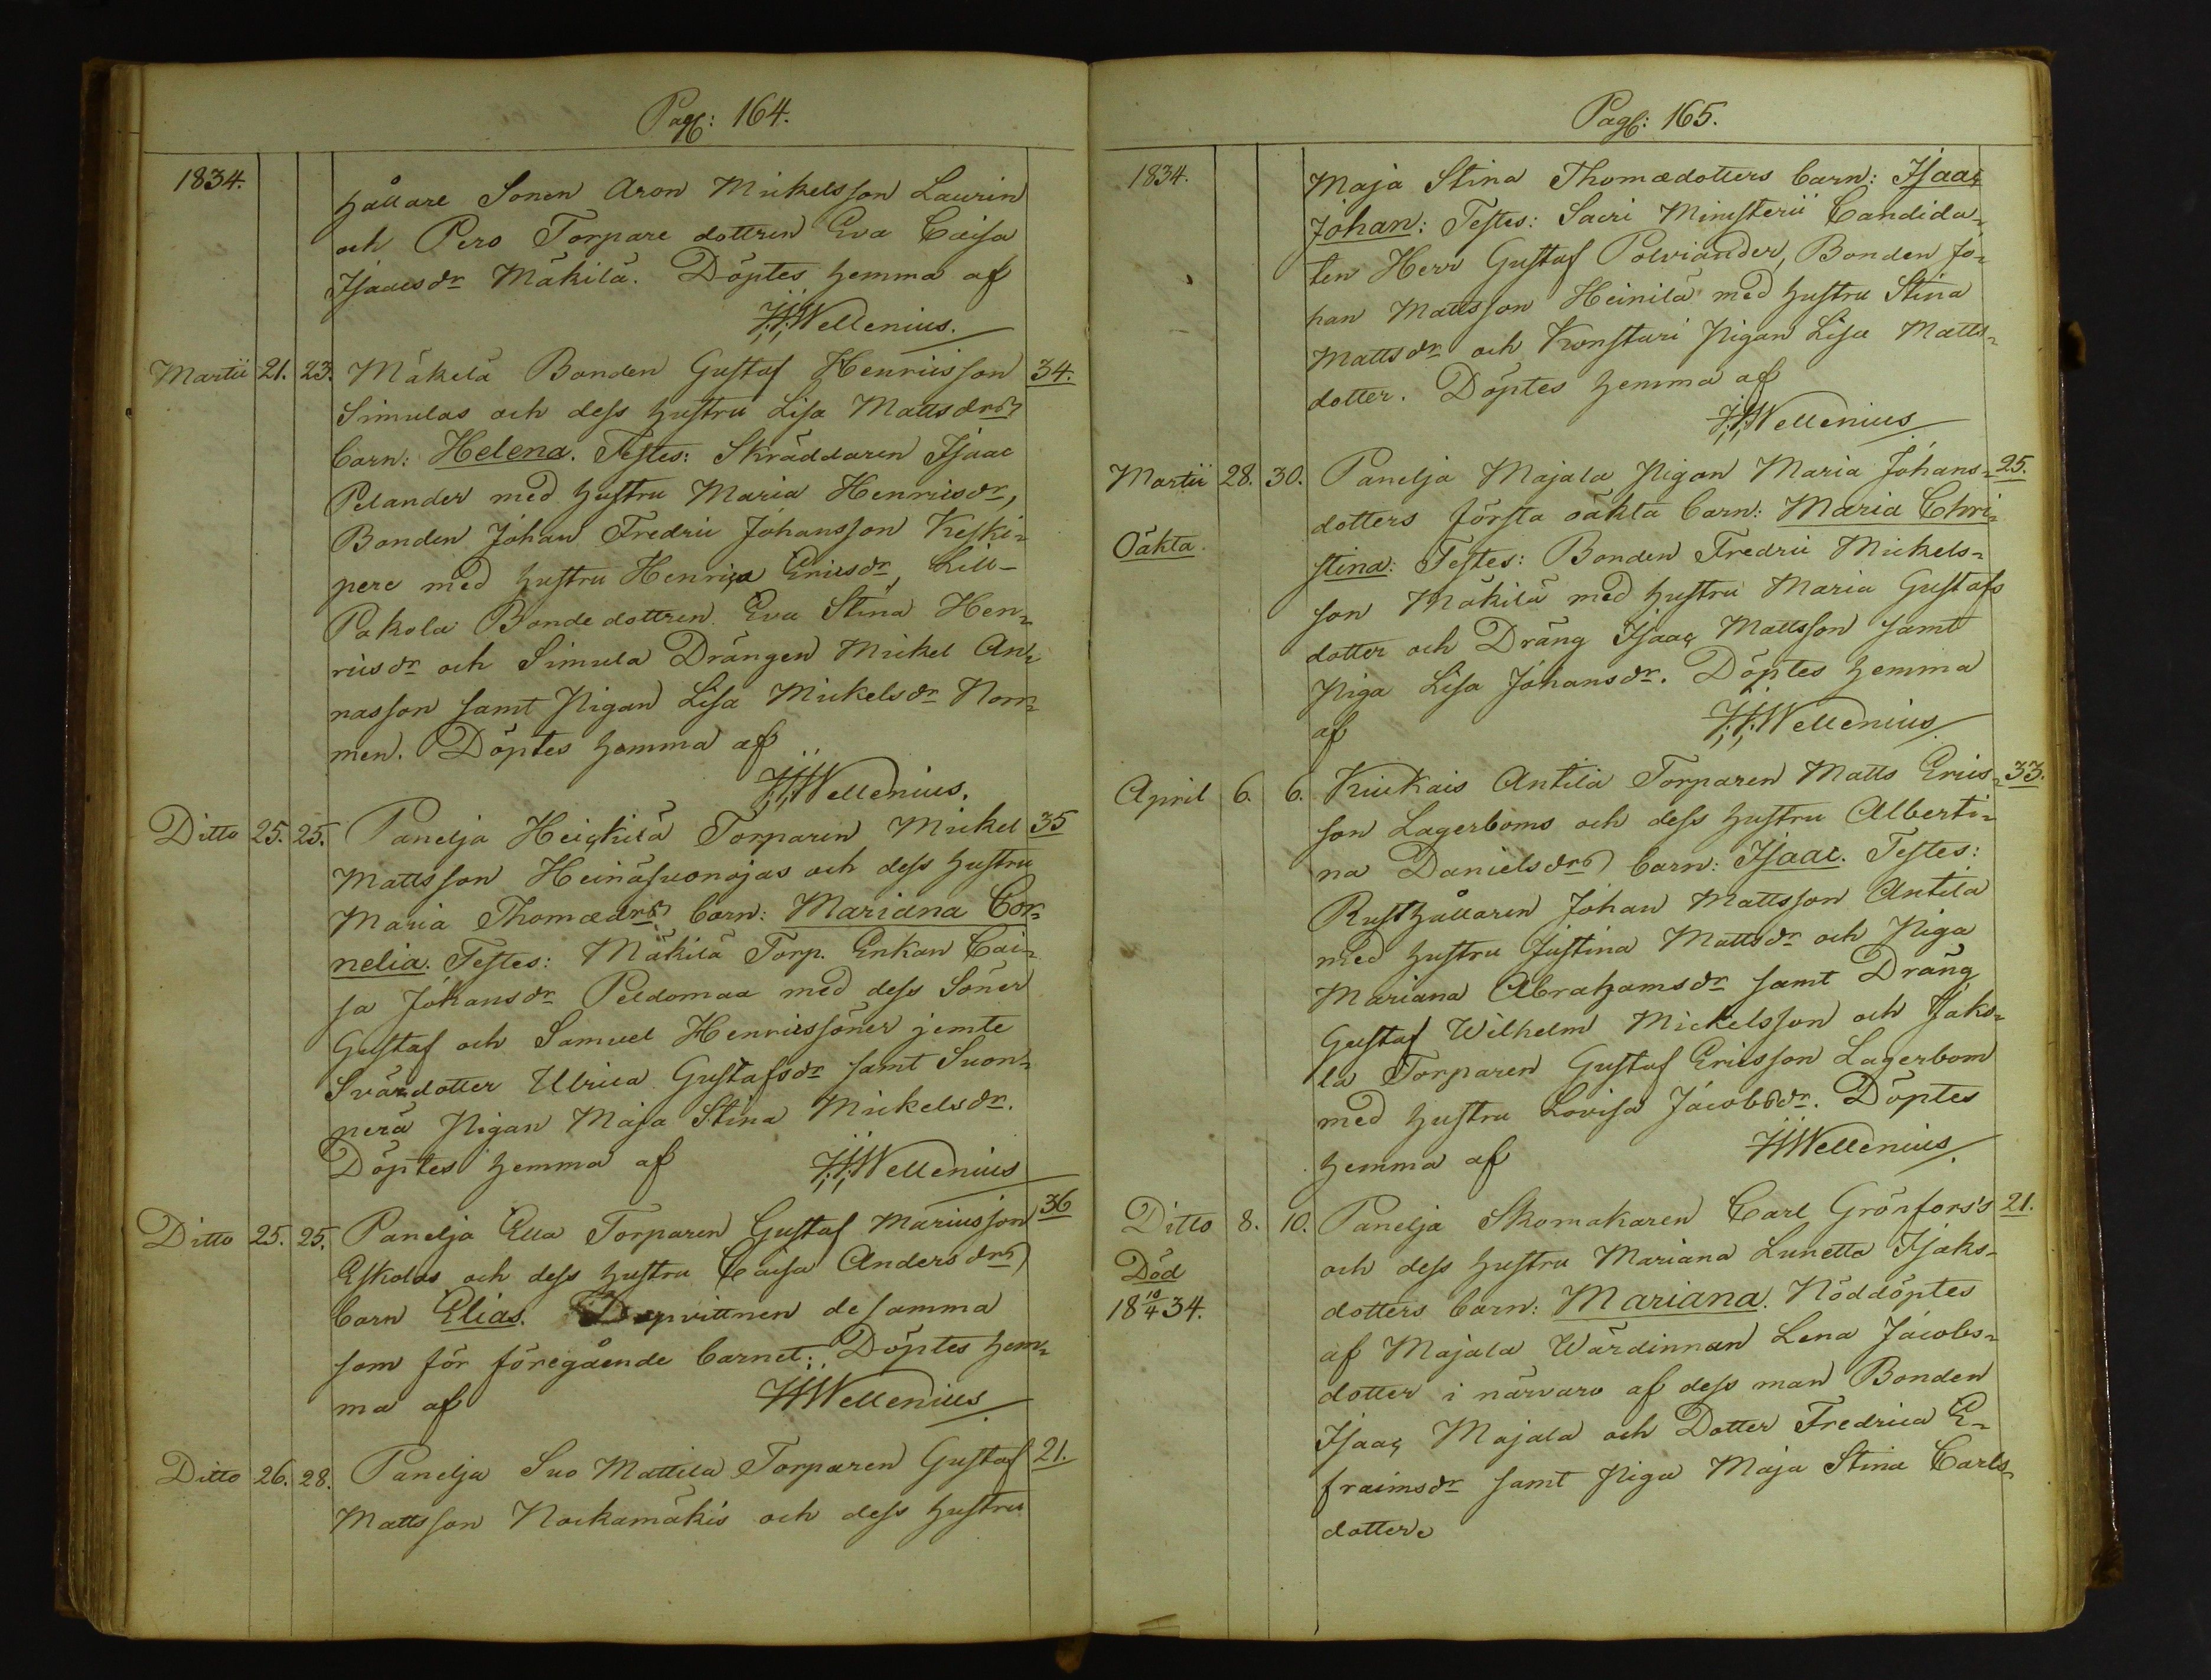 Pag: 164.
1834.
hållare Sonen Aron Mickelsson Laurin
och Pero Torpare dottren Eva Caisa
Isaacsdr Mäkilä. Döptes hemma af
J.J.Wellenius.
Martii 21. 23. Mäkelä Bonden Gustaf Henricsson 34.
Simulas och dess hustru Lisa Mattsdrs
barn: Helena. Testes: Skräddaren Isaac
Pelander med hustru Maria Henricsdr,
Bonden Johan Fredric Johansson Keski-
pere med hustru Henrica Ericsdr, Lill-
Pakola Bondedottren Eva Stina Hen-
ricsdr och Simula Drängen Mickel An-
nasson samt Pigan Lisa Mickelsdr Nom-
men. Döptes hemma af
J.J.Wellenius.
Ditto 25. 25. Panelja Heickilä Torparen Mickel 35
Mattsson Heinäsuonojas och dess hustru
Maria Thomædrs barn: Mariana Cor-
nelia. Testes: Mäkilä Torp. Enkan Cai-
sa Johansdr Peldomaa med dess Söner
Gustaf och Samuel Henricssöner jemte
Svärdotter Ulrica Gustafsdr samt Suon-
perä Pigan Maja Stina Mickelsdr.
Döptes hemma af J.J.Wellenius
Ditto 25. 25. Panelja Ella Torparen Gustaf Mariusson 36
Eskolas och dess hustru Caisa Andersdrs
barn Elias. Dopvittnen desamma
som för föregående barnet. Döptes hem-
ma af J.J.Wellenius
Ditto 26. 28. Panelja Suo Mattila Torparen Gustaf 21.
Mattsson Nackamäkis och dess hustru
Pag: 165.
1834.
Maja Stina Thomædotters barn: Isaac
Johan: Testes: Sacri Ministerii Candida-
ten Herr Gustaf Polviander, Bonden Jo-
han Mattsson Heinilä med hustru Stina
Mattsdr och Konsturi Pigan Lisa Matts-
dotter. Döptes hemma af
J.J.Wellenius
Martii 28. 30. Panelja Majala Pigan Maria Johans- 25.
dotters första oäkta barn: Maria Chri-
Oäkta.
stina: Testes: Bonden Fredric Mickels-
son Mäkilä med hustru Maria Gustafs
dotter och Dräng Isaac Mattsson samt
Piga Lisa Johansdr. Döptes hemma
af J.J.Wellenius
April 6. 6. Kiukais Antila Torparen Matts Erics- 33.
son Lagerboms och dess hustru Alberti-
na Danielsdrs barn: Isaac. Testes:
Rusthållaren Johan Mattsson Antila
med hustru Justina Mattsdr och Piga
Mariana Abrahamsdr samt Dräng
Gustaf Wilhelm Mickelsson och Jaks-
la Torparen Gustaf Ericsson Lagerbom
med hustru Lovisa Jacobsdr. Döptes
hemma af J.J.Wellenius
Ditto 8. 10. Panelja Skomakaren Carl Grönfors's 21.
och dess hustru Mariana Lunetta Isaks-
Död
18 10/4 34.
dotters barn: Mariana. Nöddöptes
af Majala Wärdinnan Lena Jacobs-
dotter i närvaro af dess man Bonden
Isaac Majala och Dotter Fredrica E-
fraimsdr samt Piga Maja Stina Carls-
dotter.